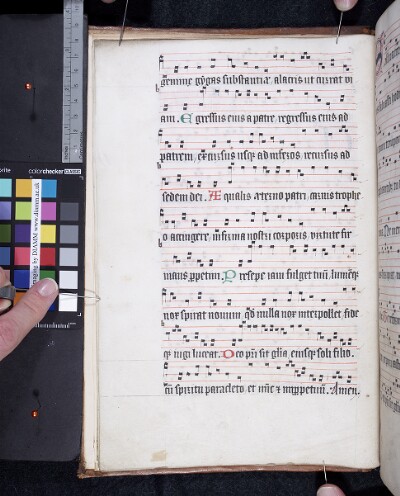 gemine gygas substantiæ, alacris ut currat vi
am. Egressus eius a patre, regressus eius ad
patrem, excursus usq; ad inferos, recursus ad
sedem dei. Æqualis æterno patri, carnis trophe
o accingere, infirma nostri corporis, virtute fir
mans ppetim. Presepe iam fulget tuū, lumēq;
nox spirat novum, qd nulla nox interpollet, fide
q; iugi luceat. Deo pri sit gl'ia, eiusq; soli filio,
cū spiritu paracleto, et nūc & in ppetuū. Amen.
colorchecker
Imaging by DIAMM www.diamm.ac.uk